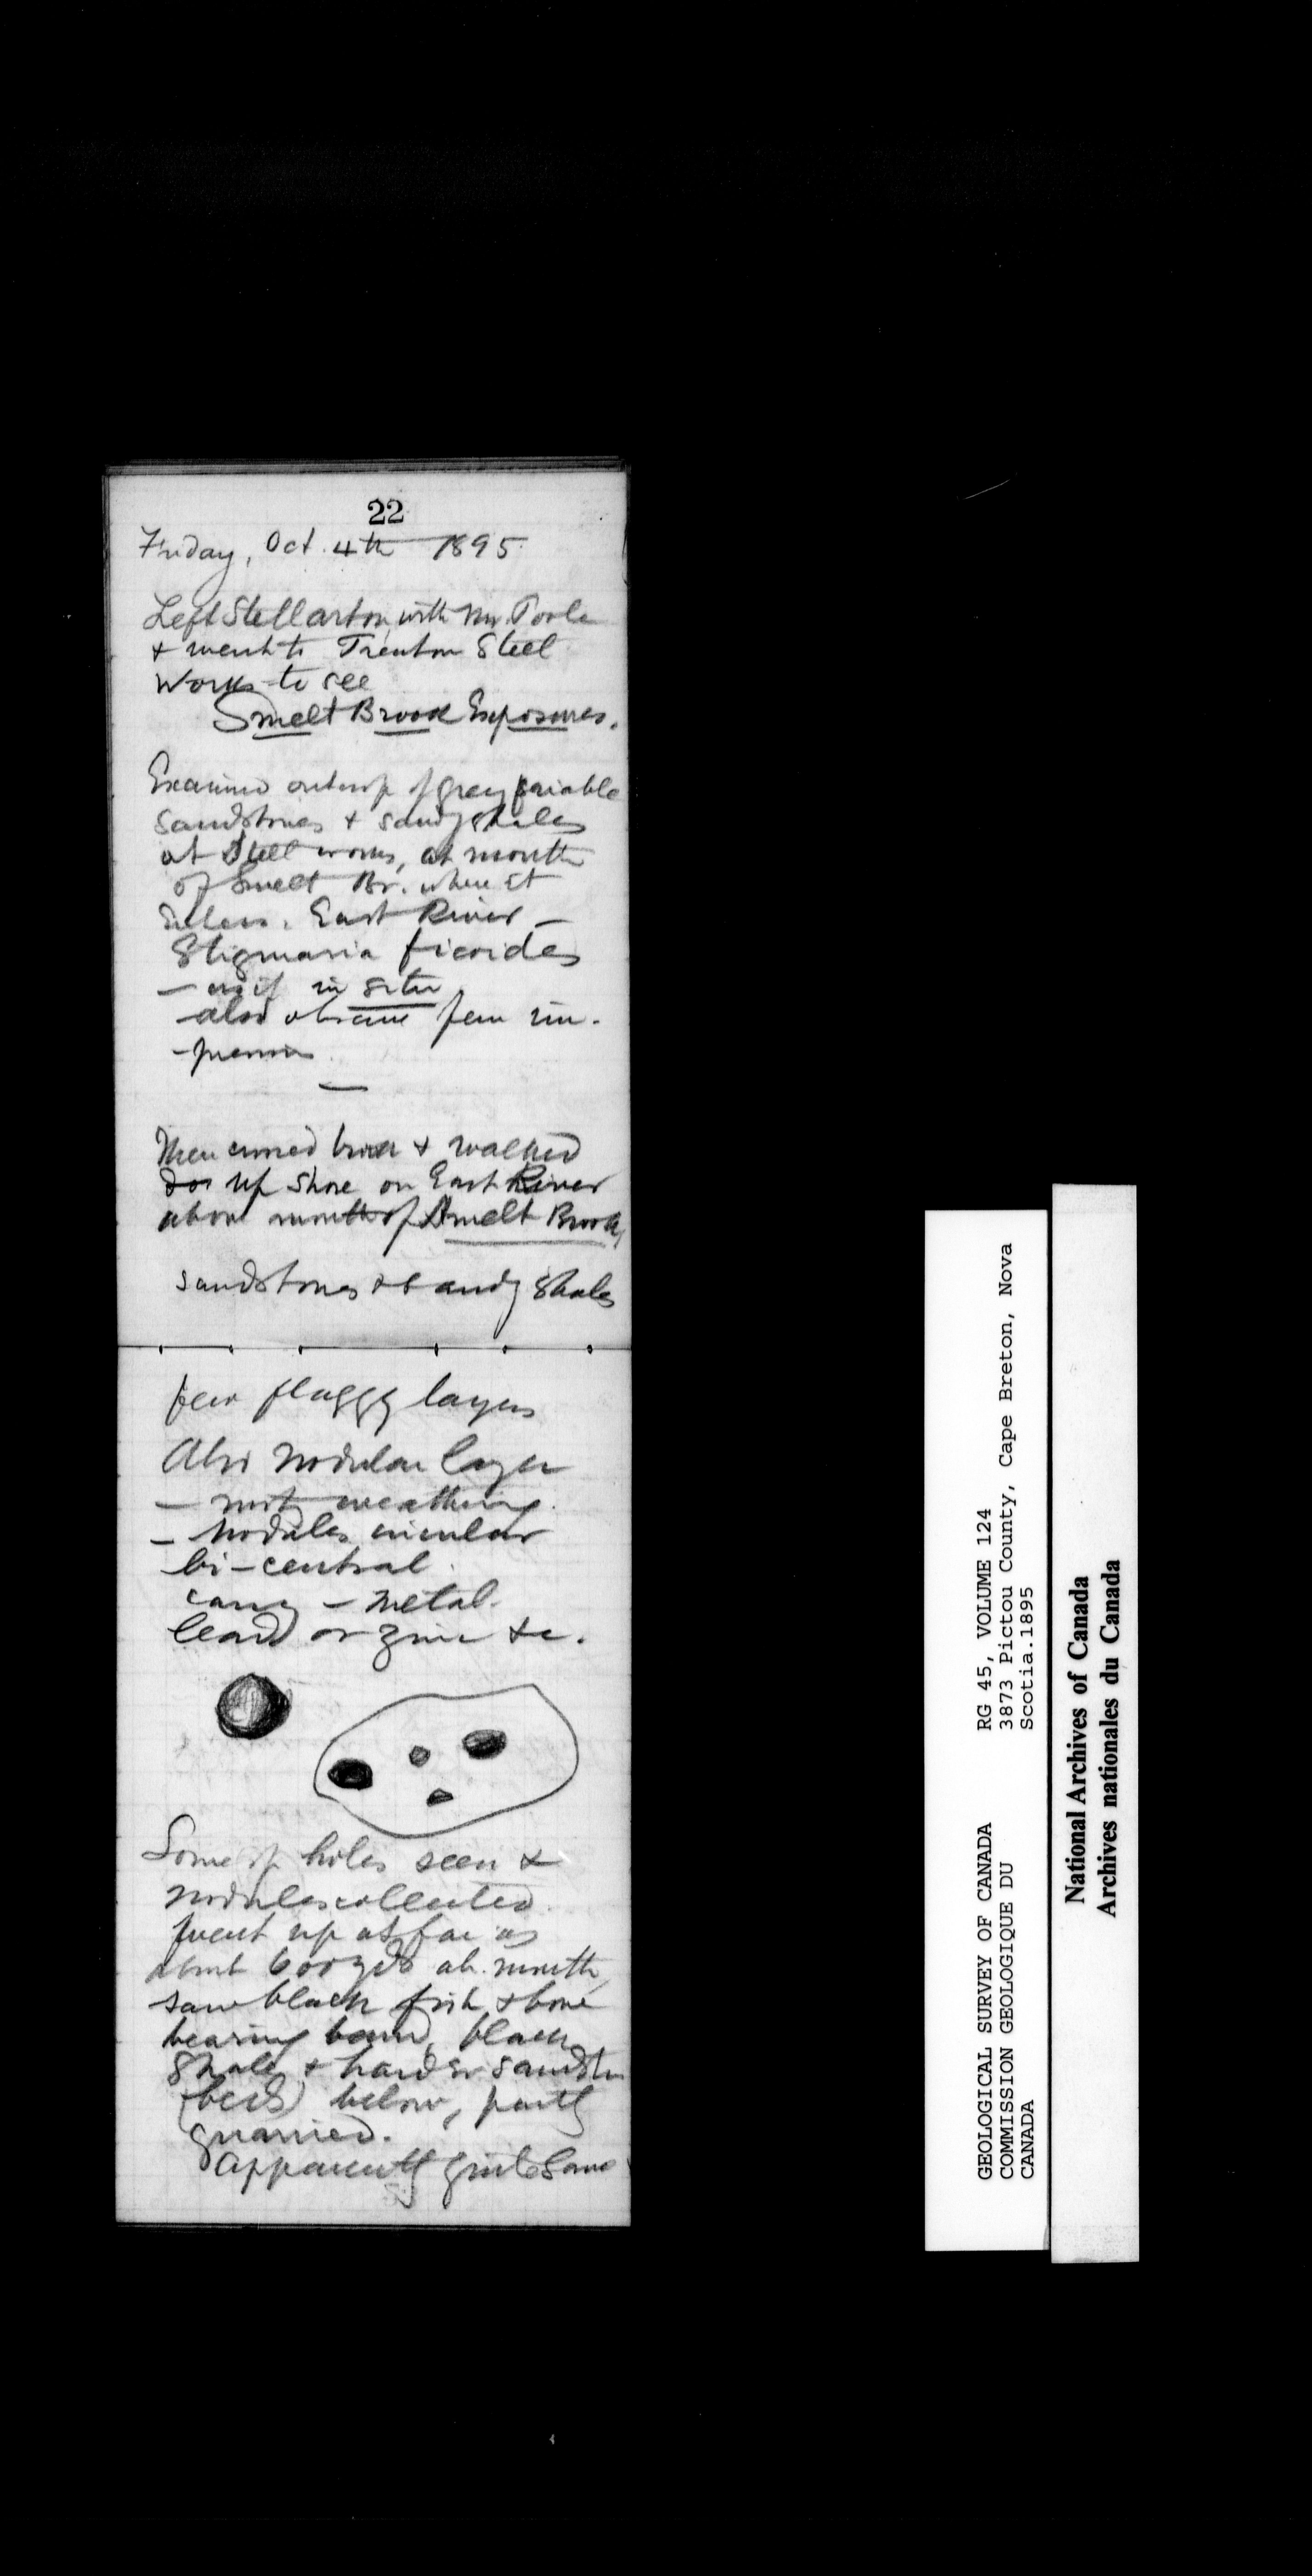 22
Friday, Oct. 4th 1895
Left Stellarton, with Mr. Poole
& went to Trenton Steel
Works to see
Smelt Brook Exposures.
Examined outcrop of grey friable
sandstones & sandy shales
at Steel works, at mouth
of Smelt Br. where it
enters East River —
Stigmaria ficoides
— as if in situ
- also obscure fern im-
-pressions
—
Then crossed brook & walked
up shore on East River
above mouth of Smelt Brook,
sandstones & sandy shales
few flaggy layers
Also nodular layer
— weathering.
— nodules circular
bi-central.
carry — metal.
lead or zinc &c.
Some of holes seen &
nodules collected
went up as far as
about 600 yds ab. mouth
saw black fish & bone
bearing band, black
shale & harder sandstn
(beds) below, partly
quarried.
Apparently same
RG 45, VOLUME 124
3873 Pictou County, Cape Breton, Nova
Scotia.1895
GEOLOGICAL SURVEY OF CANADA
COMMISSION GEOLOGIQUE DU
CANADA
National Archives of Canada
Archives nationales du Canada